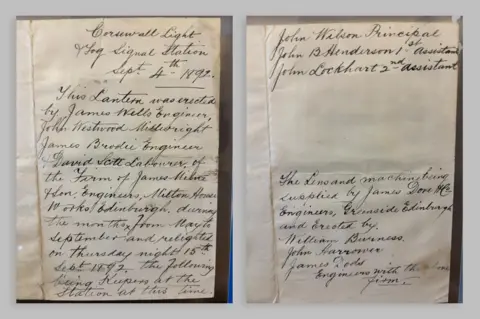 Corsewall Light
& Fog Signal Station
Sept. 4th 1892.
This Lantern was erected
by James Wells Engineer,
John Westwood Millwright
James Brodie Engineer
David Scott Labourer, of
the Firm of James Milne
& Son, Engineers, Milton House
Works, Edinburgh, during
the months from May to
September and relighted
on Thursday night 15th
Sept 1892. the following
being Keepers at the
Station at this time.
John Wilson Principal
John B Henderson 1st assistant
John Lockhart 2nd assistant
The Lens and machine being
supplied by James Dove & Co
Engineers, Greenside Edinburgh
and Erected by.
William Burness.
John Harrower
James Dods
Engineers with the
firm.